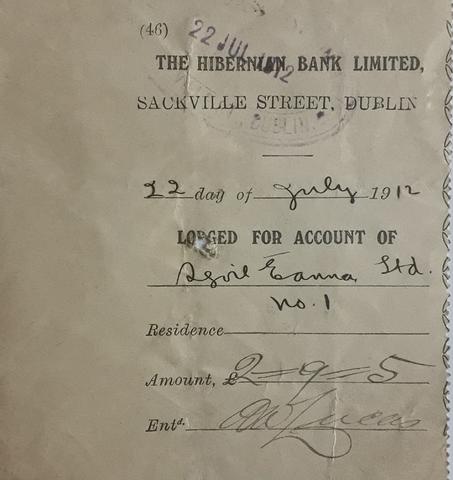 (46)
22 JUL 1912
THE HIBERNIAN BANK LIMITED,
SACKVILLE STREET, DUBLIN
DUBLIN.
22 day of July 1912
LODGED FOR ACCOUNT OF
Sgoil Eanna, Ltd.
No. 1
Residence
Amount, £2=9=5
Entd. Lucas